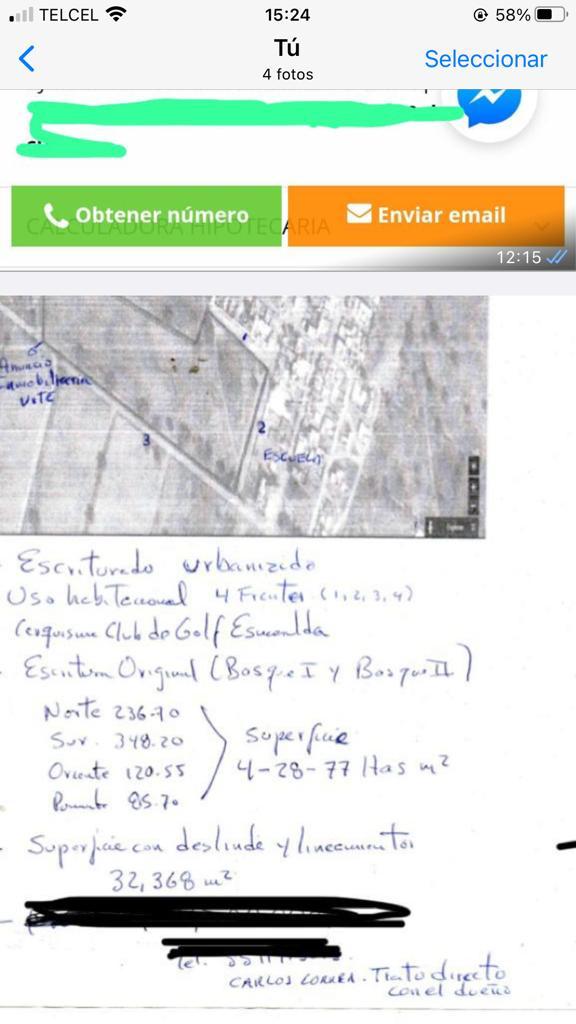 TELCEL 15:24 58%
Tú
4 fotos
Seleccionar
Obtener número
Enviar email
CALCULADORA HIPOTECARIA
12:15
Anuncio
Inmobiliaria
VOTE
1
2
3
ESCUELA
- Escriturado urbanizado
Uso habitacional 4 Frentes (1, 2, 3, 4)
Cerquisima Club de Golf Esmeralda
- Escritura Original (Bosque I y Bosque II)
Norte 236.70
Sur. 348.20
Oriente 120.55
Poniente 85.70
Superficie
4-28-77 Has m²
- Superficie con deslinde y lineamientos
32,368 m²
Tel.
CARLOS CORREA. Trato directo
con el dueño